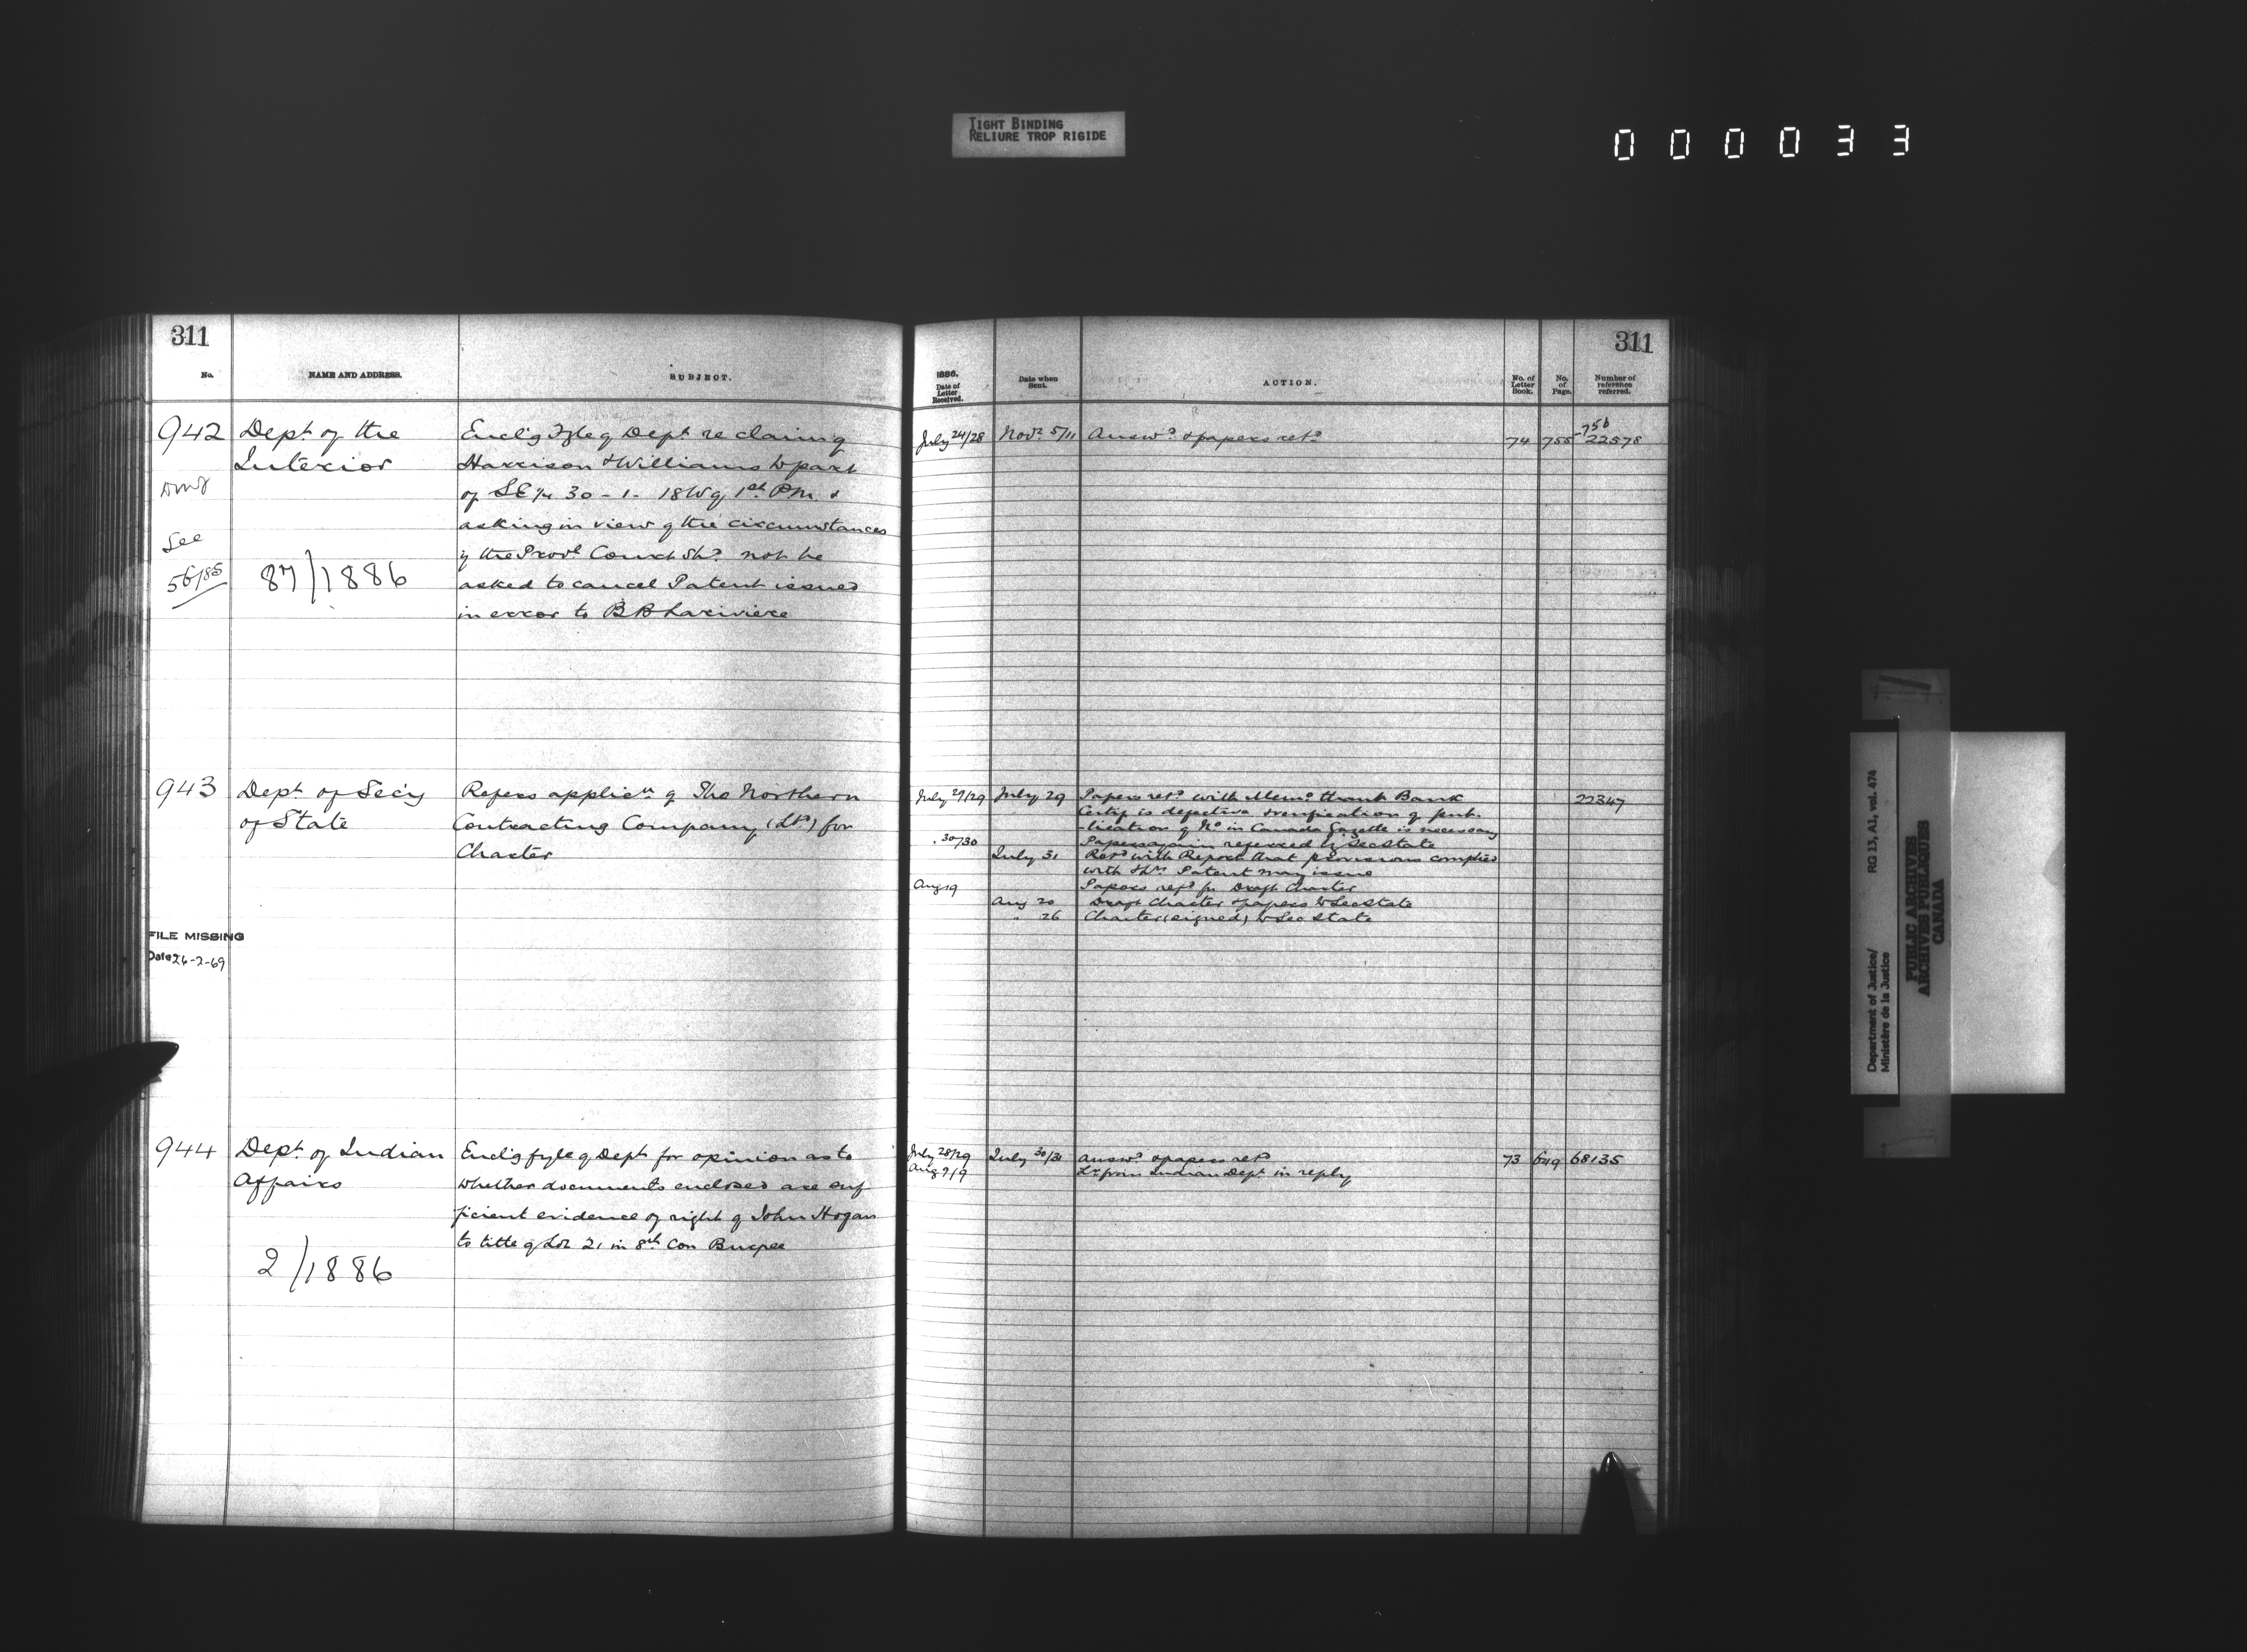 TIGHT BINDING
RELIURE TROP RIGIDE
000033
311
No.
NAME AND ADDRESS.
SUBJECT.
942
Dept. of the
Interior
See
56/85
87/1886
Encl'g Fyle of Dept re claim of
Harrison & Williams to part
of SE 1/4 30 - 1 - 18 W of 1st P.M. &
asking in view of the circumstances
if the Provl Court shd. not be
asked to cancel Patent issued
in error to B B Lariviere
943
Dept. of Sec'y
of State
Refers applicn of The Northern
Contracting Company (Ltd) for
Charter
FILE MISSING
Date 26-2-69
944
Dept. of Indian
Affairs
2/1886
Encl'g fyle of Dept for opinion as to
whether documents enclosed are suf
ficient evidence of right of John Hogan
to title of Lot 21 in 8th Con Burpee
311
1886.
Date of
Letter
Received.
Date when
Sent.
ACTION.
No. of
Letter
Book.
No.
of
Page.
Number of
reference
referred.
July 24/28 Novr. 5/11 Answd. & papers retd. 74 755-756 22578
July 27/29 July 29 Papers retd. with Memo. that Bank 22347
Certif is defective & verification of pub-
-lication of No. in Canada Gazette is necessary
" 30/30 Papers again referred by Sec State
July 31 Retd with Report that provisions complied
with & Patent may issue
Aug 19 Papers refd for Draft Charter
Aug 20 Draft Charter & papers to Sec State
" 26 Charter (signed) to Sec State
July 28/29 July 30/31 Answd. & papers retd 73 649 68135
Aug 7/9 Lr from Indian Dept. in reply
Department of Justice/
Ministère de la Justice
RG 13, A1, vol. 474
PUBLIC ARCHIVES
ARCHIVES PUBLIQUES
CANADA